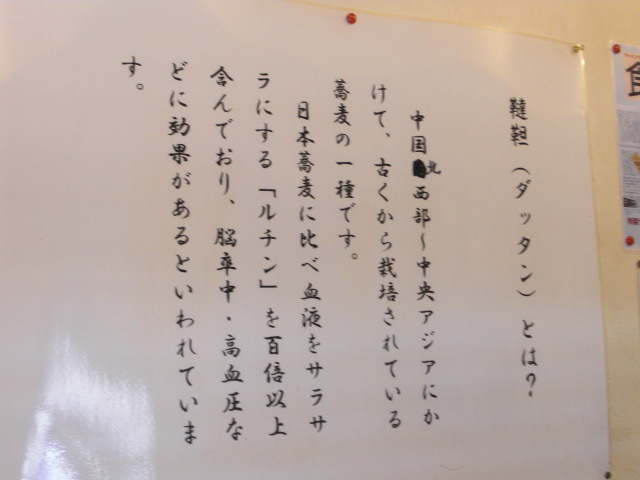 韃靼（ダッタン）とは？
中国北西部～中央アジアにか
けて、古くから栽培されている
蕎麦の一種です。
日本蕎麦に比べ血液をサラサ
ラにする「ルチン」を百倍以上
含んでおり、脳卒中・高血圧な
どに効果があるといわれていま
す。